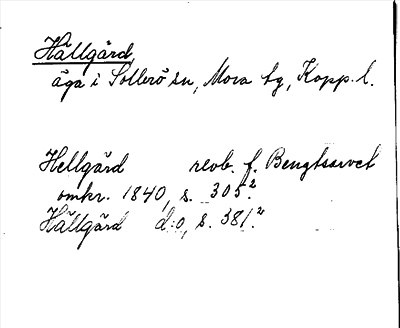 Hällgård,
äga i Sollerö sn, Mora tg, Kopp. l.
Hellgård revb. f. Bengtsarvet
omkr. 1840, s. 305².
Hällgård d:o, s. 381².